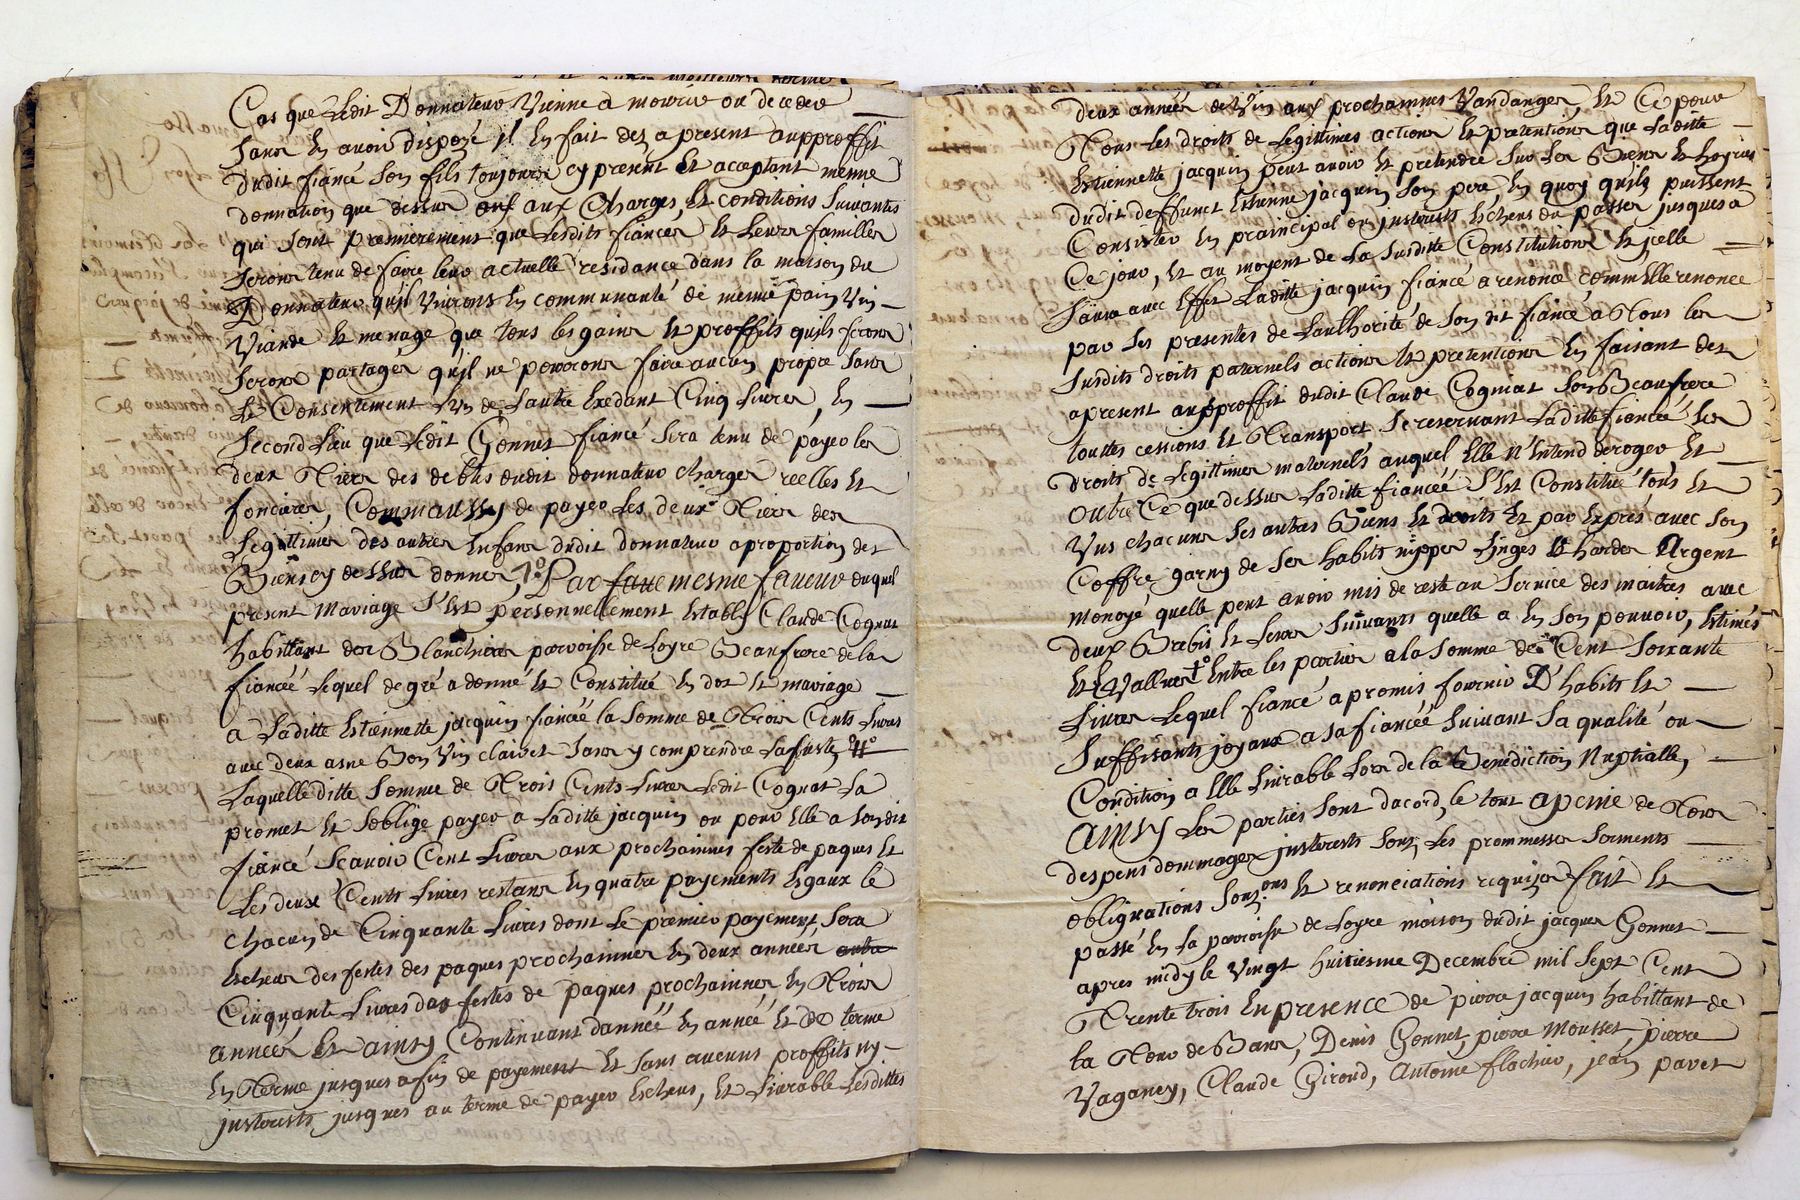 Cas que Ledit Donnateur Vienne a mourir ou deceder
sans En avoir dispozé jl En fait dez a present auproffit
dudit fiancé son fils toujours cy present Et acceptant mesme
donnation que dessus aux Charges, Et conditions suivantes
qui sont premierement que Lesdits fiancés Et Leurs familles
seront tenu de faire leur actuelle residance dans la maison du
Donnateur qu'jl Vivrons En communauté de mesme pain Vin
Viande Et menage que tous les gains Et proffits quils feront
seront partagés qu'jl ne pourrons faire aucun propre sans
Le Consentement L'un de L'autre Exedant Cinq Livres, En
second Lieu que Ledit Gonnet fiancé sera tenu de payer les
deux Tiers des debtes dudit donnateur charges réelles Et
foncieres, Commaussy de payer Les deux Tiers des
Legittimes des autres Enfans dudit donnateur a proportion des
Biens cy dessus donnes, Par mesme faveur duquel
present Mariage S'Est personnellement Estably Claude Cognat
habittant des Blanchieres parroisse de Loyre Beaufrere de la
fiancéé Lequel de gré a donné Et Constitué En dot Et mariage
a Laditte Estiennette jacquin fiancéé la somme de Trois Cents Livres
avec deux asne Bon Vin clairet sans y comprendre La fuste
Laquelle ditte somme de Trois Cents Livres Ledit Cognat La
promet Et s'oblige payer a Laditte jacquin ou pour Elle a sondit
fiancé Scavoir Cent Livres aux prochaines feste de paques Et
Les deux Cents Livres restans En quatre payements Egaux le
chacun de Cinquante Livres dont Le premier payement sera
Escheus des festes des paques prochainnes En deux années
Cinquante Livres das festes de paques prochainnes En Trois
années Et ainsy Continuant d'annéé En année Et de terme
En Terme jusques a fin de payement Et sans aucuns proffits ny
jnterests jusques au terme de payer Escheus, Et Livrable Lesdittes
deux années de Vin aux prochainnes Vandanges, Et Ce pour
Tous Les droits de Legittimes actions Et pretentions que Laditte
Estiennette jacquin peut avoir Et pretendre sur Les Biens Et hoyries
dudit deffunct Estienne jacquin son pere En quoy qu'ils puissent
Consister En praincipal ou jnterests Escheus du passer jusques a
Ce jour, Et au moyent de La susditte Constitution Et jcelle
sauve avec Effet Laditte jacquin fiancé a renoncé comm'Elle renonce
par Les presentes de L'authorité de son dit fiancé a Tous les
susdits droits paternels actions Et pretentions En faisant des
apresent auproffit dudit Claude Cogniat son Beaufrere
touttes cessions Et Transport se reservant Laditte fiancéé Les
droits de Legittimes maternels auquel Elle N'Entend deroger Et
outre Ce que dessus Laditte fiancéé S'Est Constitué tous Et
Vns chacuns ses autres Biens Et droits Et par Exprés avec son
Coffre garny de ses habits nippes Linges Et hardes Argent
Monoyé quelle peut avoir mis de reste au Service des maitres avec
deux Brebis Et Leurs suivants quelle a En son pouvoir, Estimés
Et Vallues Entre les parties a la somme de Cent soixante
Livres Lequel fiancé a promis fournir D'habits Et
suffisants joyaux a sa fiancéé suivant sa qualité ou
Condition a Elle Livrable Lors de la Benediction Nuptialle,
AINSY Les parties sont dacord, le tout apeine de Tous
despens dommages jnterests sous Les prommesses serments
obligations sousons Et renonciations requises fait Et
passé En La parroisse de Loyre maison dudit jacques Gonnet
apres midy le Vingt huitiesme Decembre mil sept Cent
Trente trois En presence de pierre jacquin habittant de
la Tour de Bans, Denis Gonnet, pierre Mousset, pierre
Vaganey, Claude Giroud, Antoine flachur, jean pavet